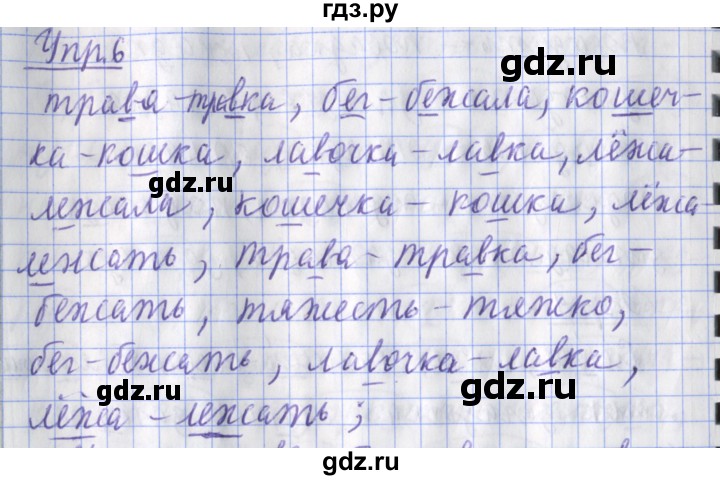 гдз.ру
Упр.6
gdz.ru
трава-травка, бег-бежала, кошеч-
ка-кошка, лавочка-лавка, лёжа-
gdz.ru
лежала, кошечка-кошка, лёжа-
лежать, трава-травка, бег-
бежать, тяжесть-тяжко,
бег-бежать, лавочка-лавка,
gdz.ru
gdz.ru
лёжа-лежать;
gdz.ru